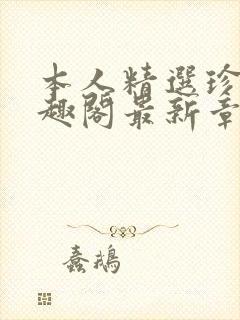 本人精選珍
趣閣最新章
蠢鵝